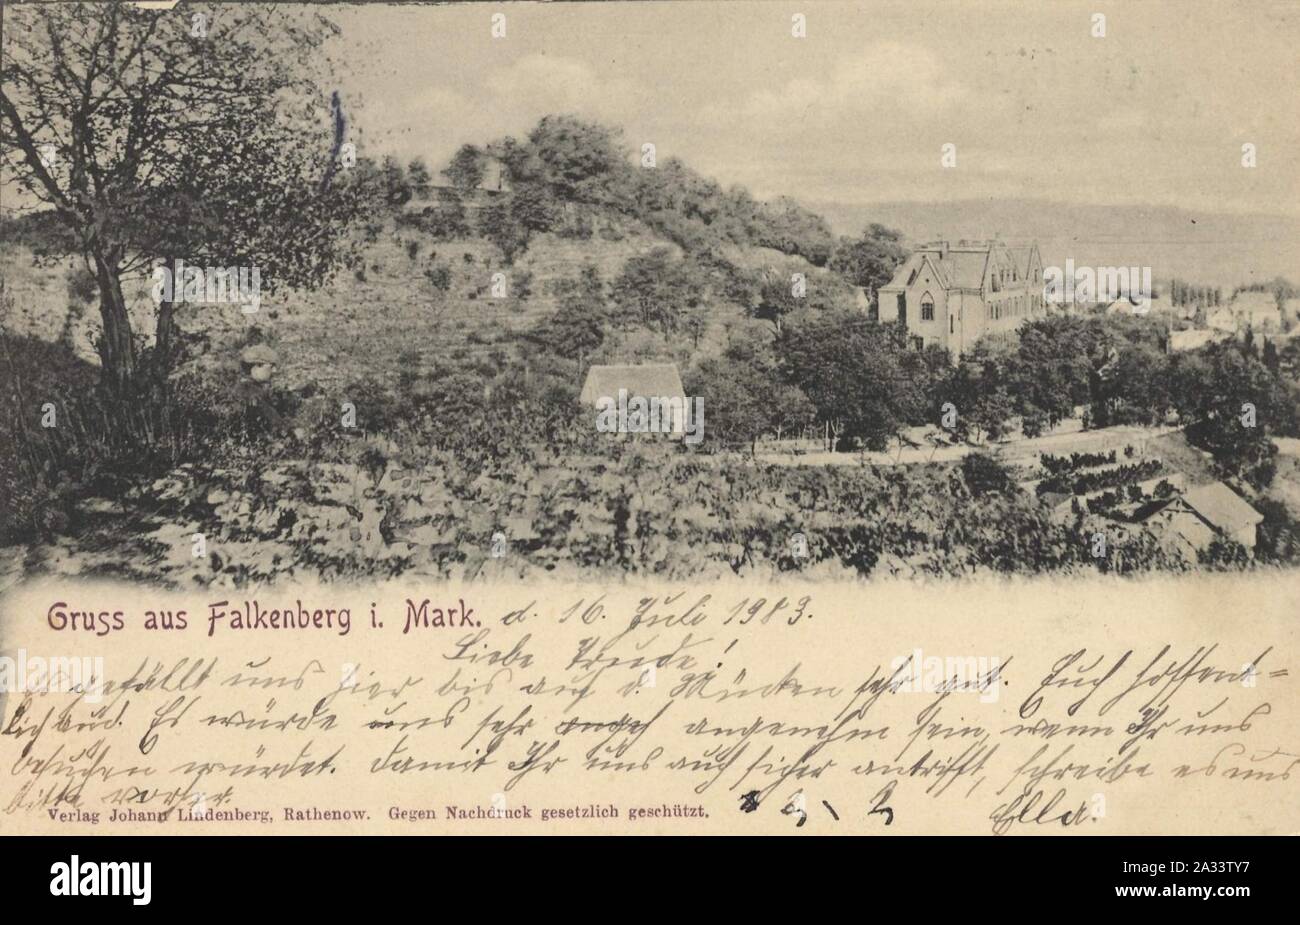 Gruss aus Falkenberg i. Mark. d. 16. Juli 1903.
Liebe Trude!
Es gefällt uns hier bis auf d. Mücken sehr gut. Euch hoffent=
lich auch. Es würde uns sehr angenehm sein, wenn Ihr uns
besuchen würdet. Damit Ihr uns auch sicher antrifft, schreibe es uns
bitte vorher.
Ella.
Verlag Johann Lindenberg, Rathenow. Gegen Nachdruck gesetzlich geschützt.
alamy
alamy
Image ID: 2A33TY7
www.alamy.com